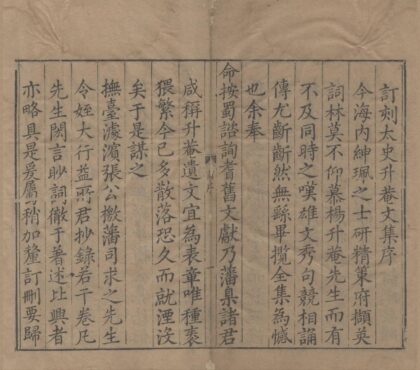 訂刻太史升菴文集序
今海内紳珮之士研精策府擷英
詞林莫不仰慕楊升菴先生而有
不及同時之嘆雄文秀句競相誦
傳尤齗齗然無繇畢攬全集為憾
也余奉
命按蜀諮詢耆舊文獻乃藩臬諸君
咸稱升菴遺文宜為表章唯種袠
猥繁今已多散落恐久而就湮沒
矣于是謀之
撫臺濾濱張公檄藩司求之先生
令姪大行益所君抄錄若干卷凡
先生閎言眇詞徹于著述比興者
亦略具是爰屬稍加釐訂刪要歸